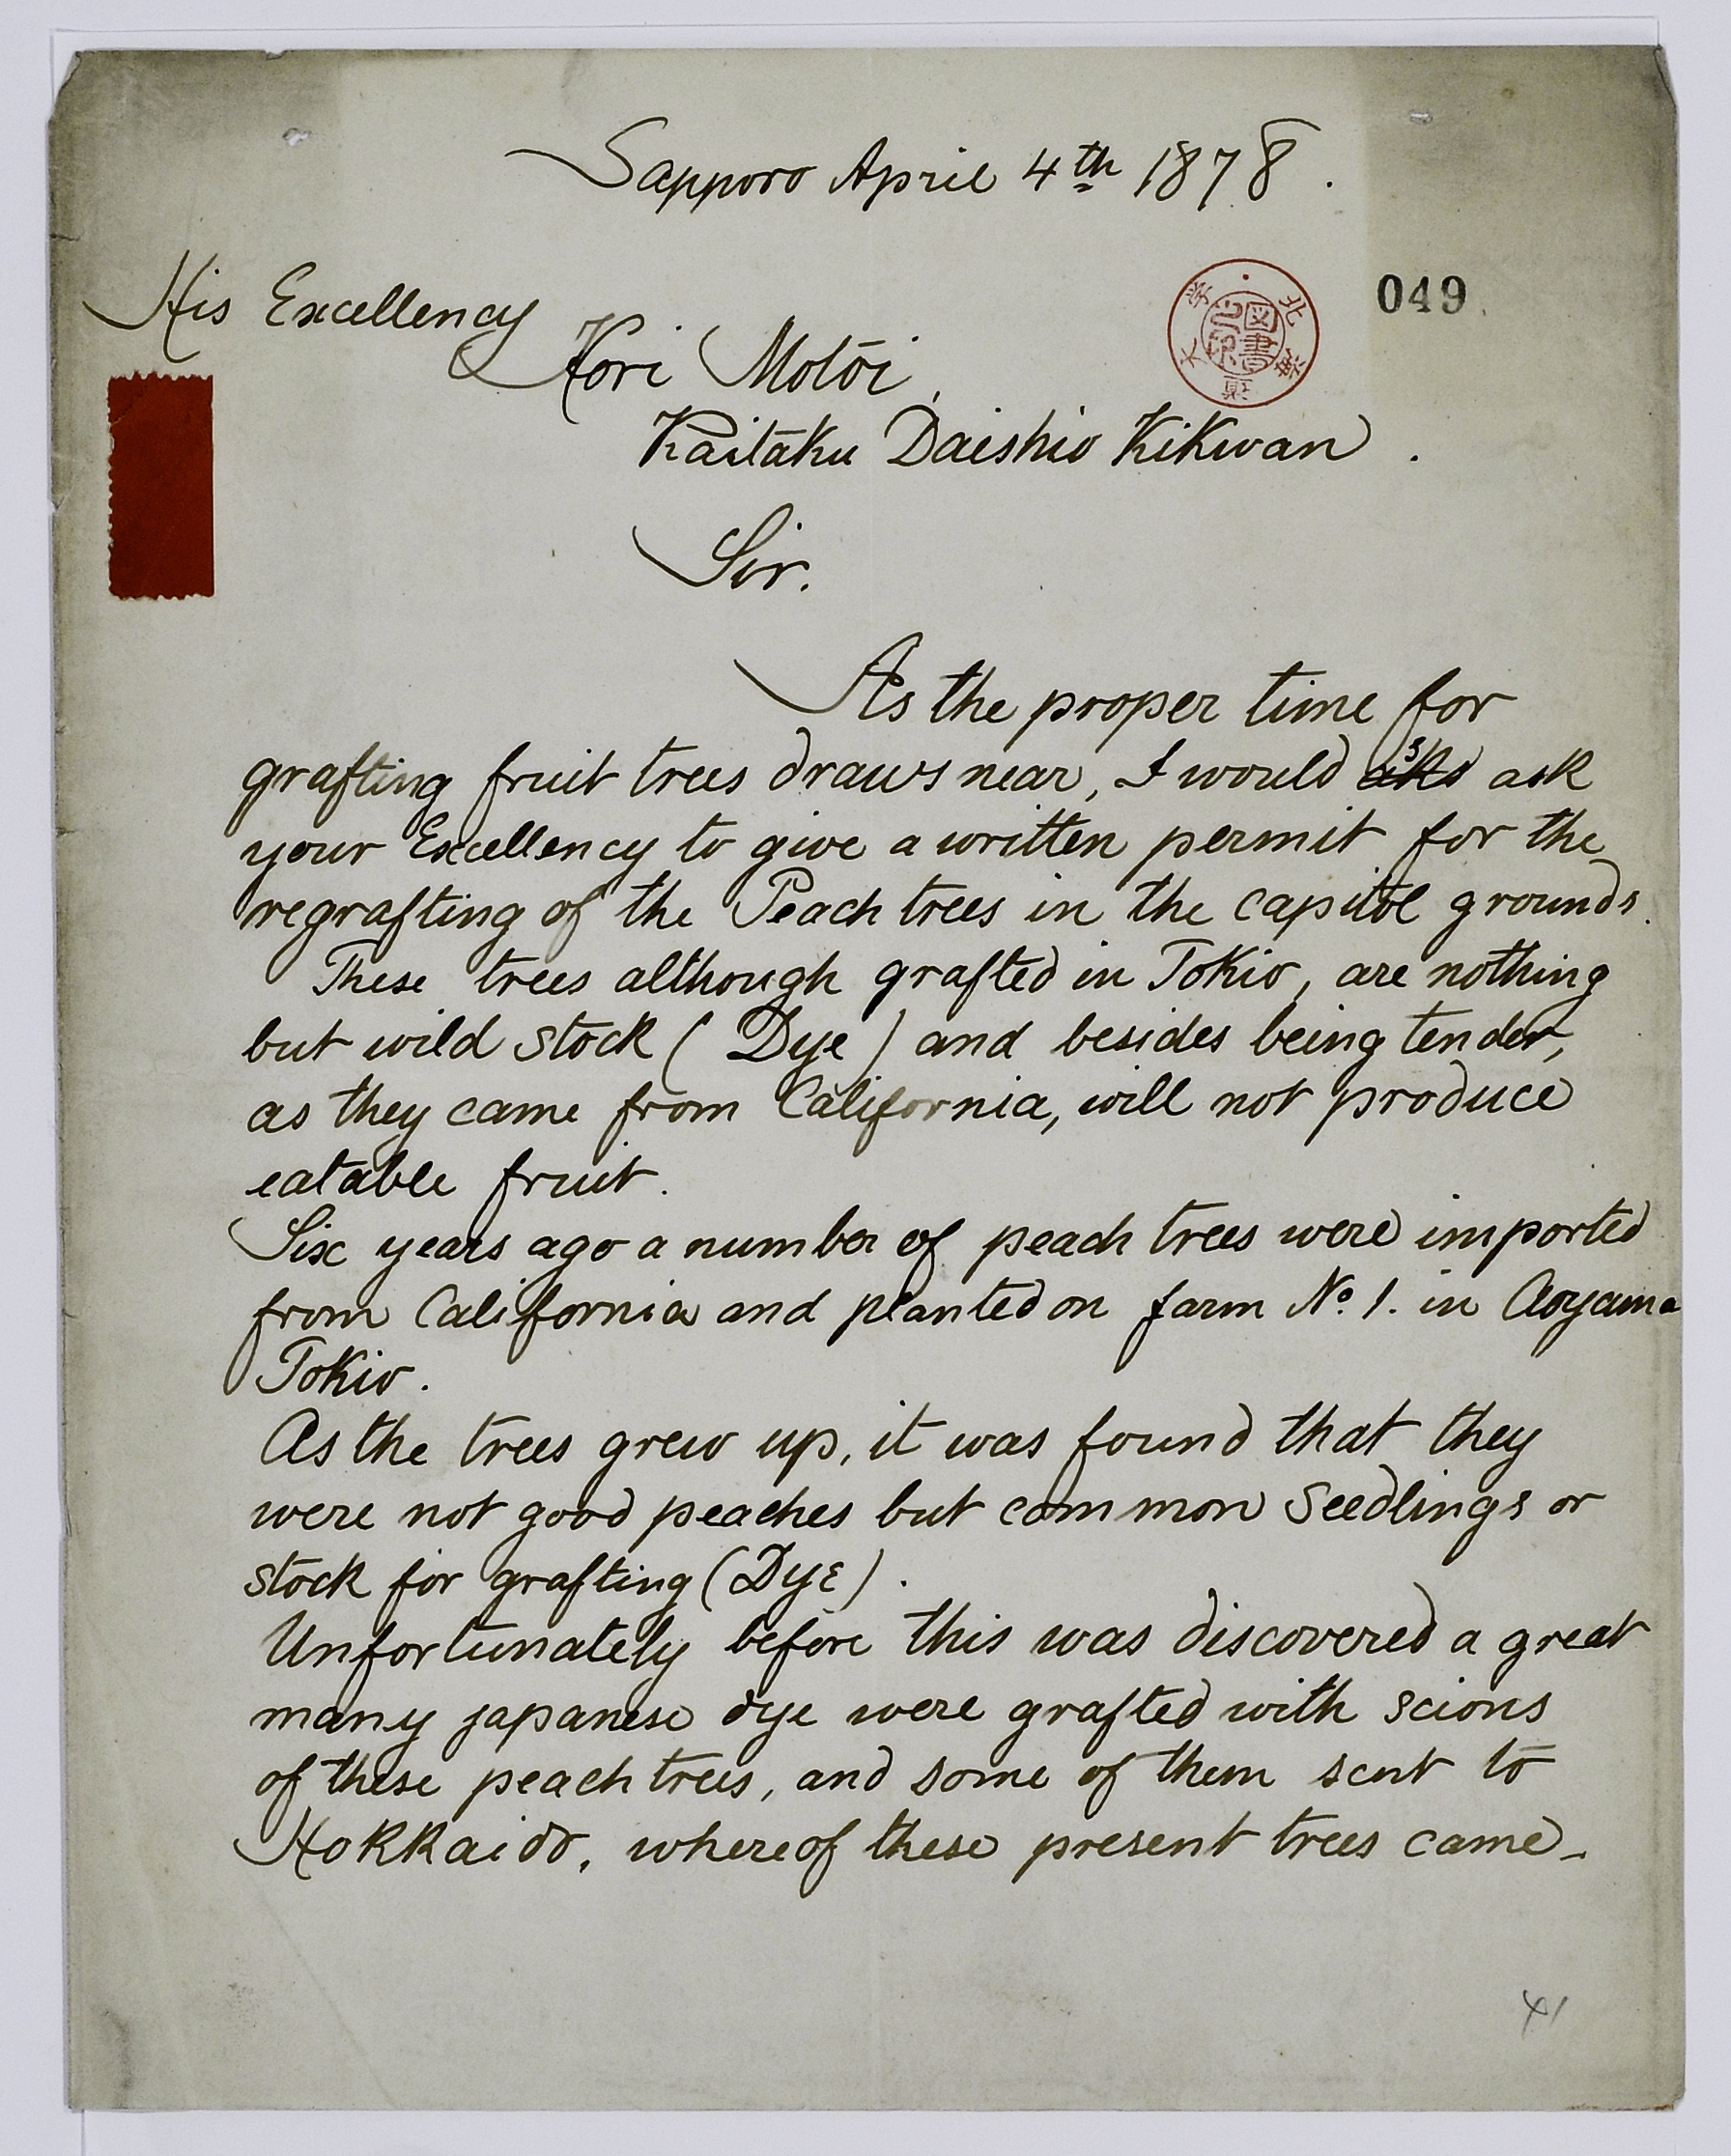 Sapporo April 4th 1878.
His Excellency
049
Hori Motoi,
Kaitaku Daishio Kikwan.
Sir.
As the proper time for
grafting fruit trees draws near, I would asks ask
your Excellency to give a written permit for the
regrafting of the Peach trees in the capitol grounds.
These trees although grafted in Tokio, are nothing
but wild stock (Dye) and besides being tender,
as they came from California, will not produce
eatable fruit.
Six years ago a number of peach trees were imported
from California and planted on farm No. 1. in Aoyama
Tokio.
As the trees grew up, it was found that they
were not good peaches but common Seedlings or
stock for grafting (Dye).
Unfortunately before this was discovered a great
many japanese dye were grafted with scions
of these peach trees, and some of them sent to
Hokkaido, whereof these present trees came.